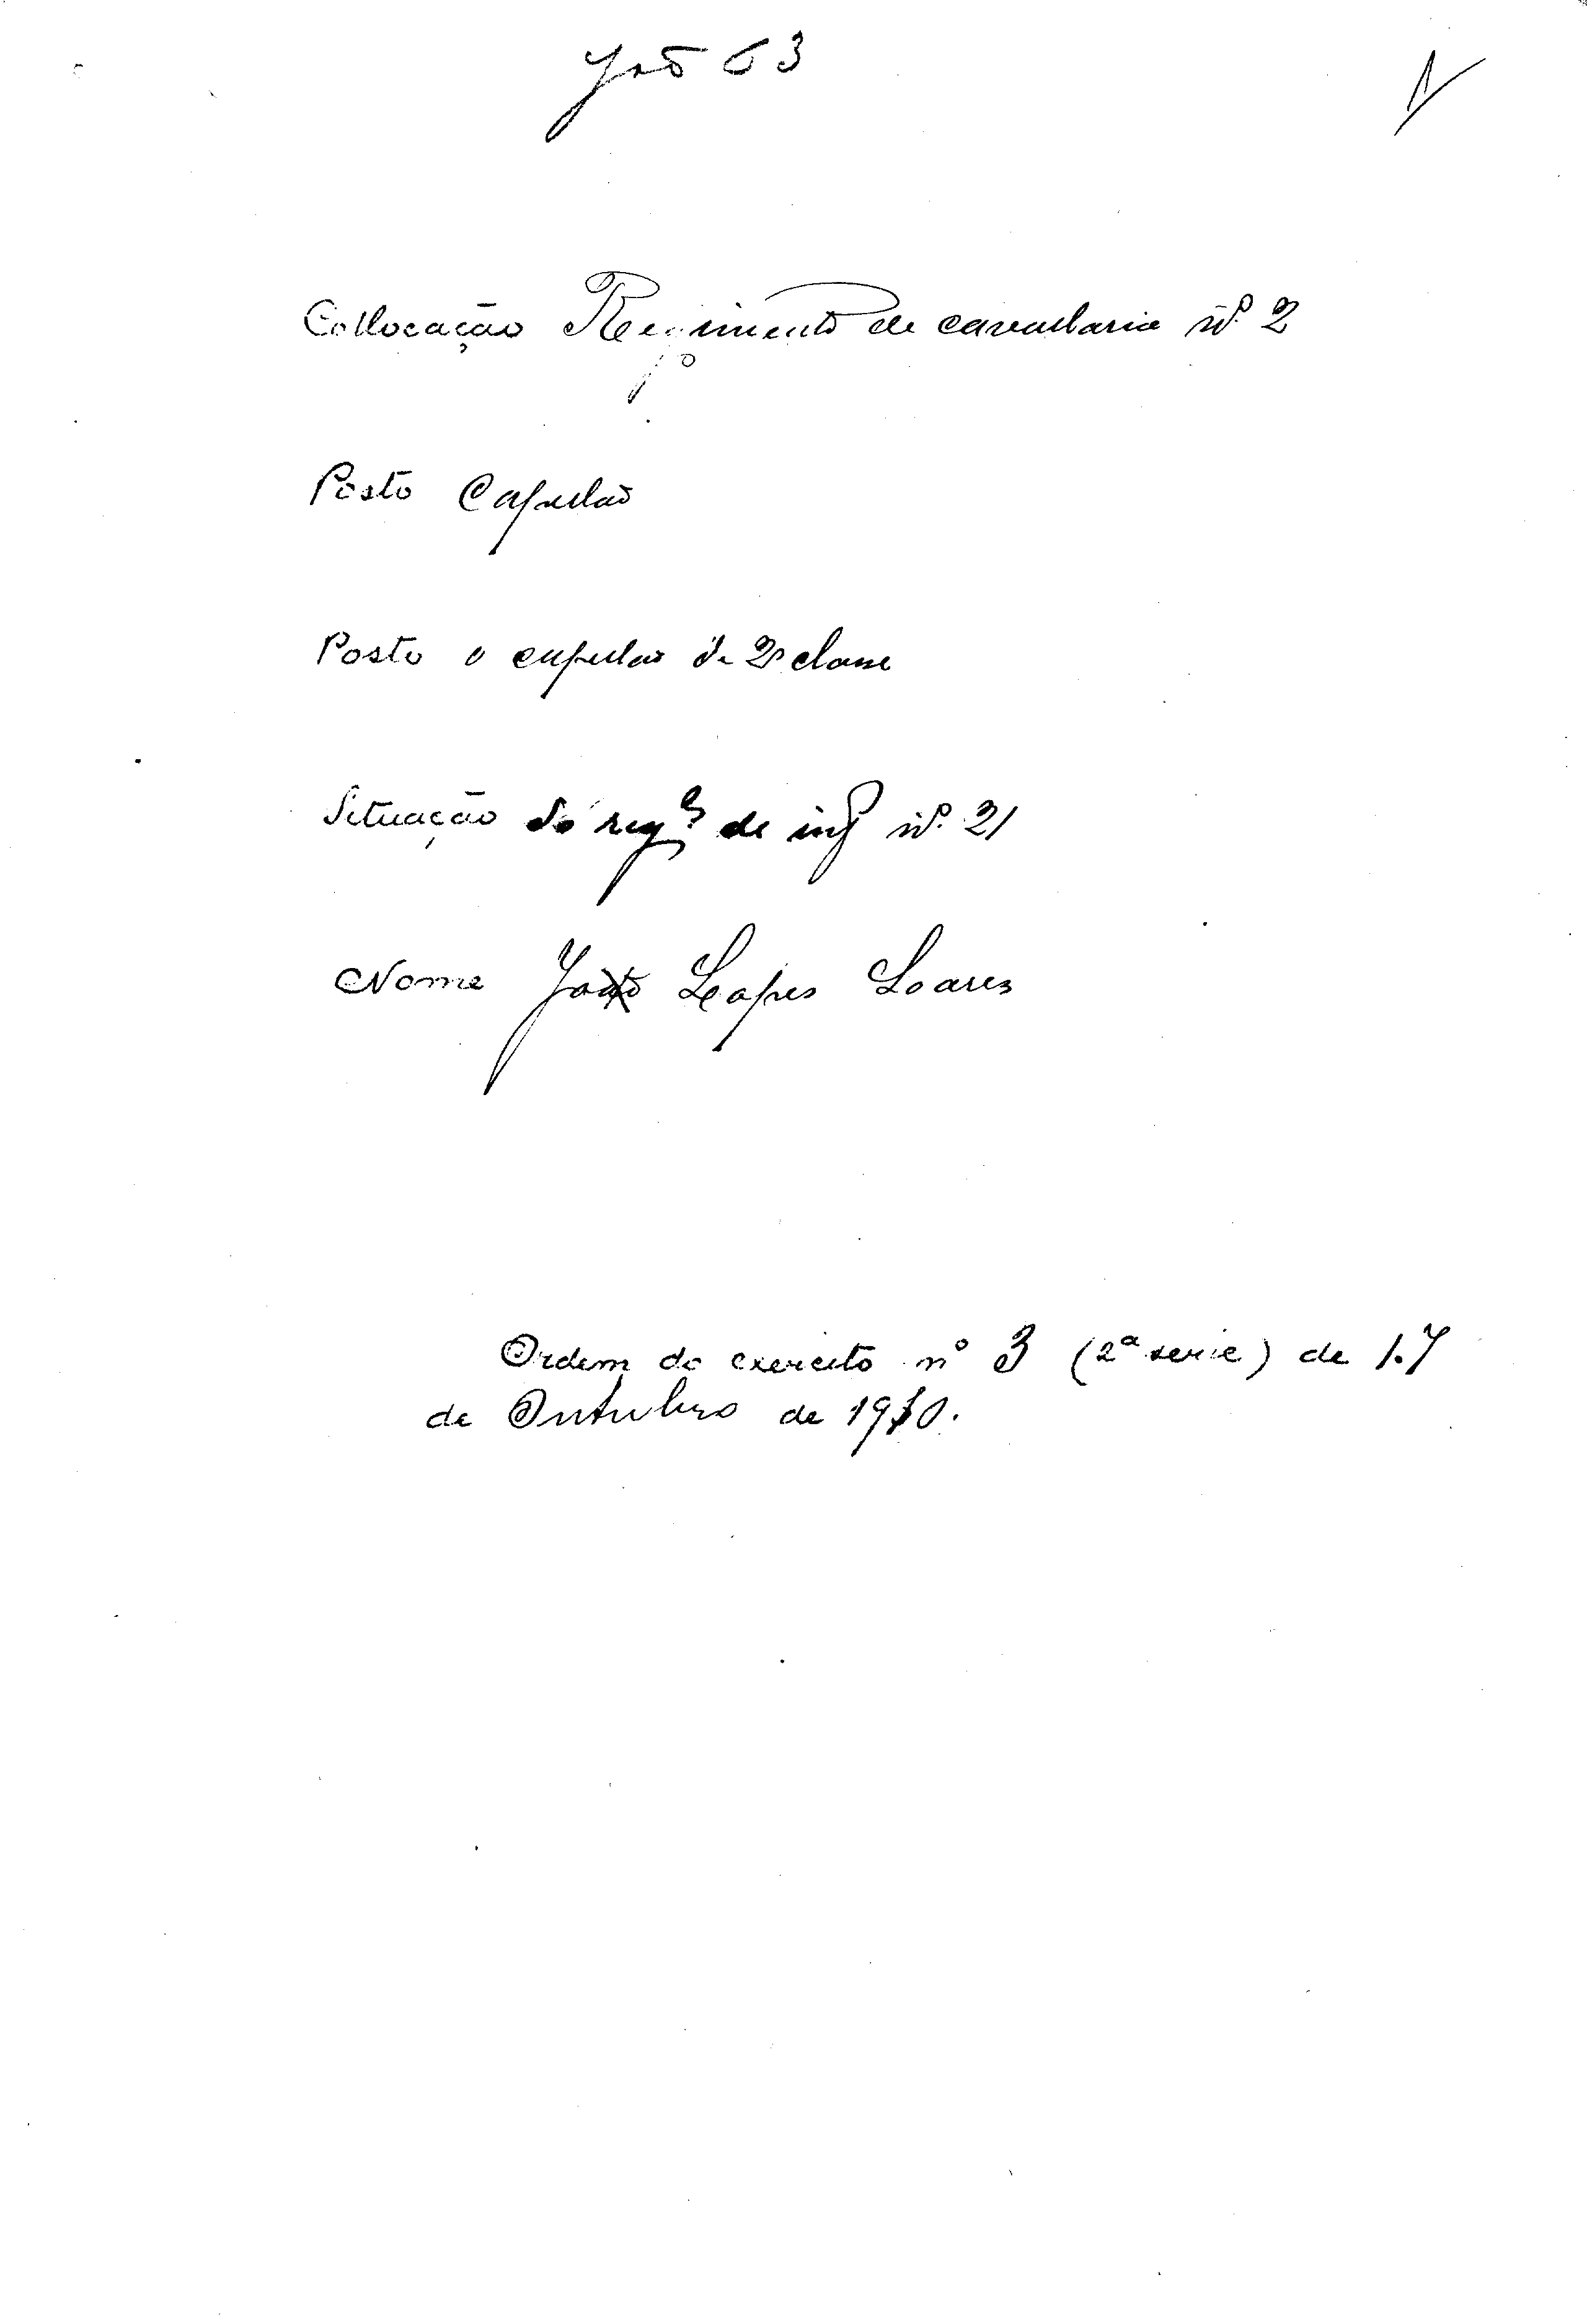 João 63
Collocação Regimento de cavallaria nº. 2
Posto Capellão
Posto o capellão de 2ª classe
Situação do regº de infª nº. 21
Nome João Lopes Soares
Ordem do exercito nº 3 (2ª serie) de 17
de Outubro de 1910.